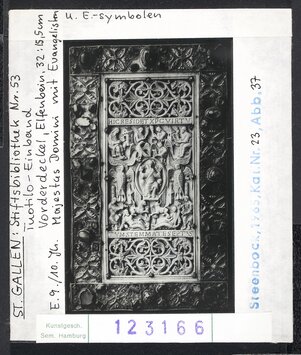 ST. GALLEN: Stiftsbibliothek Nr. 53
Tuotilo-Einband
Vorderdeckel, Elfenbein, 32:15,5cm
E. 9./10. Jh. Majestas Domini mit Evangelisten
u. E.-symbolen
HIC RESIDET XPC VIRTV
Steenbock, 1965, Kat. Nr. 23, Abb. 37
Kunstgesch.
Sem. Hamburg
123166